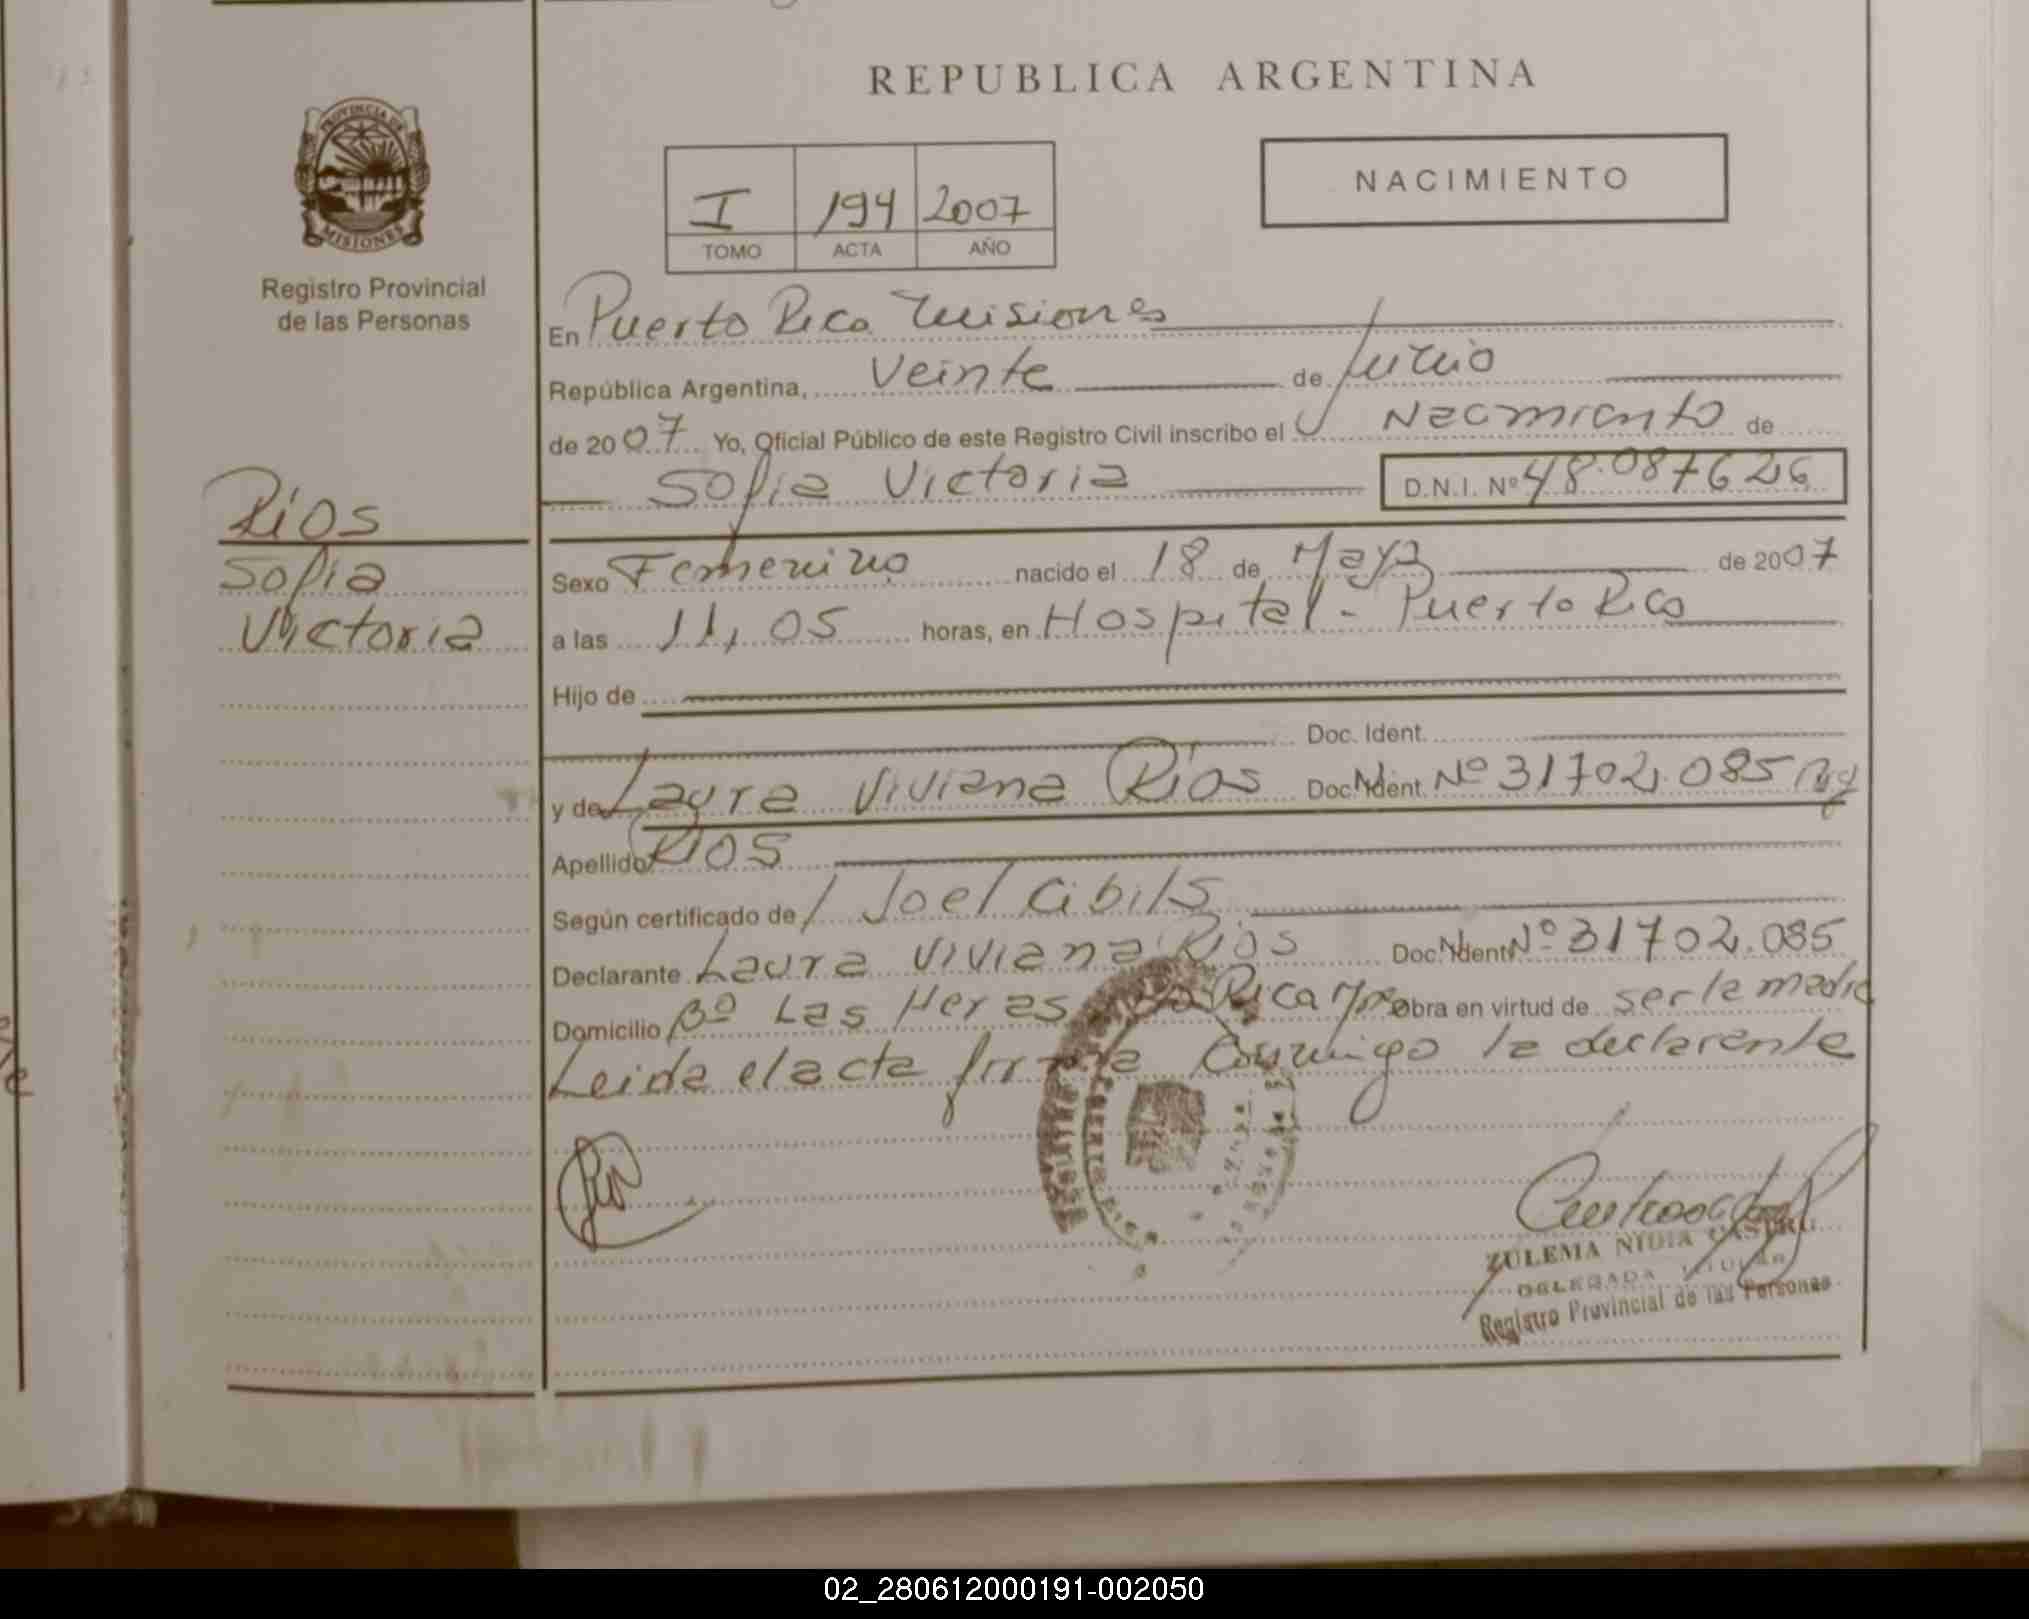 REPUBLICA ARGENTINA
PROVINCIA DE
MISIONES
Registro Provincial
de las Personas
NACIMIENTO
I 194 2007
TOMO ACTA AÑO
En Puerto Rico Misiones
República Argentina, Veinte de Junio
de 2007 Yo, Oficial Público de este Registro Civil inscribo el Nacimiento de
Sofia Victoria D.N.I. Nº 48.087626
Ríos
Sofia
Victoria
Sexo Femenino nacido el 18 de Mayo de 2007
a las 11,05 horas, en Hospital - Puerto Rico
Hijo de
Doc. Ident.
y de Laura Viviana Ríos Doc. Ident. Nº 31702.085
Apellido Ríos
Según certificado de Joel Cibils
Declarante Laura Viviana Ríos Doc. Ident. Nº 31702.085
Domicilio Bº Las Heras Rico Obra en virtud de ser la madre
Leida el acta firma Conmigo la declarante
ZULEMA NIDIA CASTRO
DELEGADA TITULAR
Registro Provincial de las Personas
02_280612000191-002050